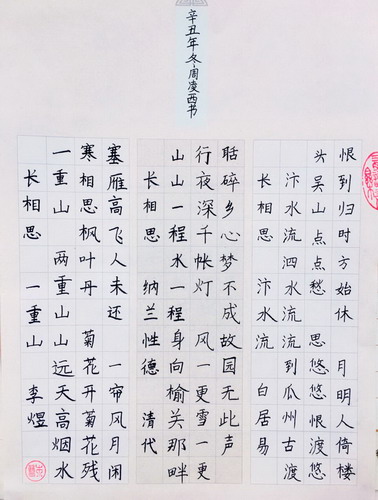 辛丑年冬周凌西书
长相思 一重山 李煜
一重山 两重山山远天高烟水
寒相思枫叶丹 菊花开菊花残
塞雁高飞人未还 一帘风月闲
长相思 纳兰性德 清代
山一程水一程身向榆关那畔
行夜深千帐灯 风一更雪一更
聒碎乡心梦不成故园无此声
长相思 汴水流 白居易
汴水流泗水流流到瓜州古渡
头吴山点点愁 思悠悠恨悠悠
恨到归时方始休 月明人倚楼